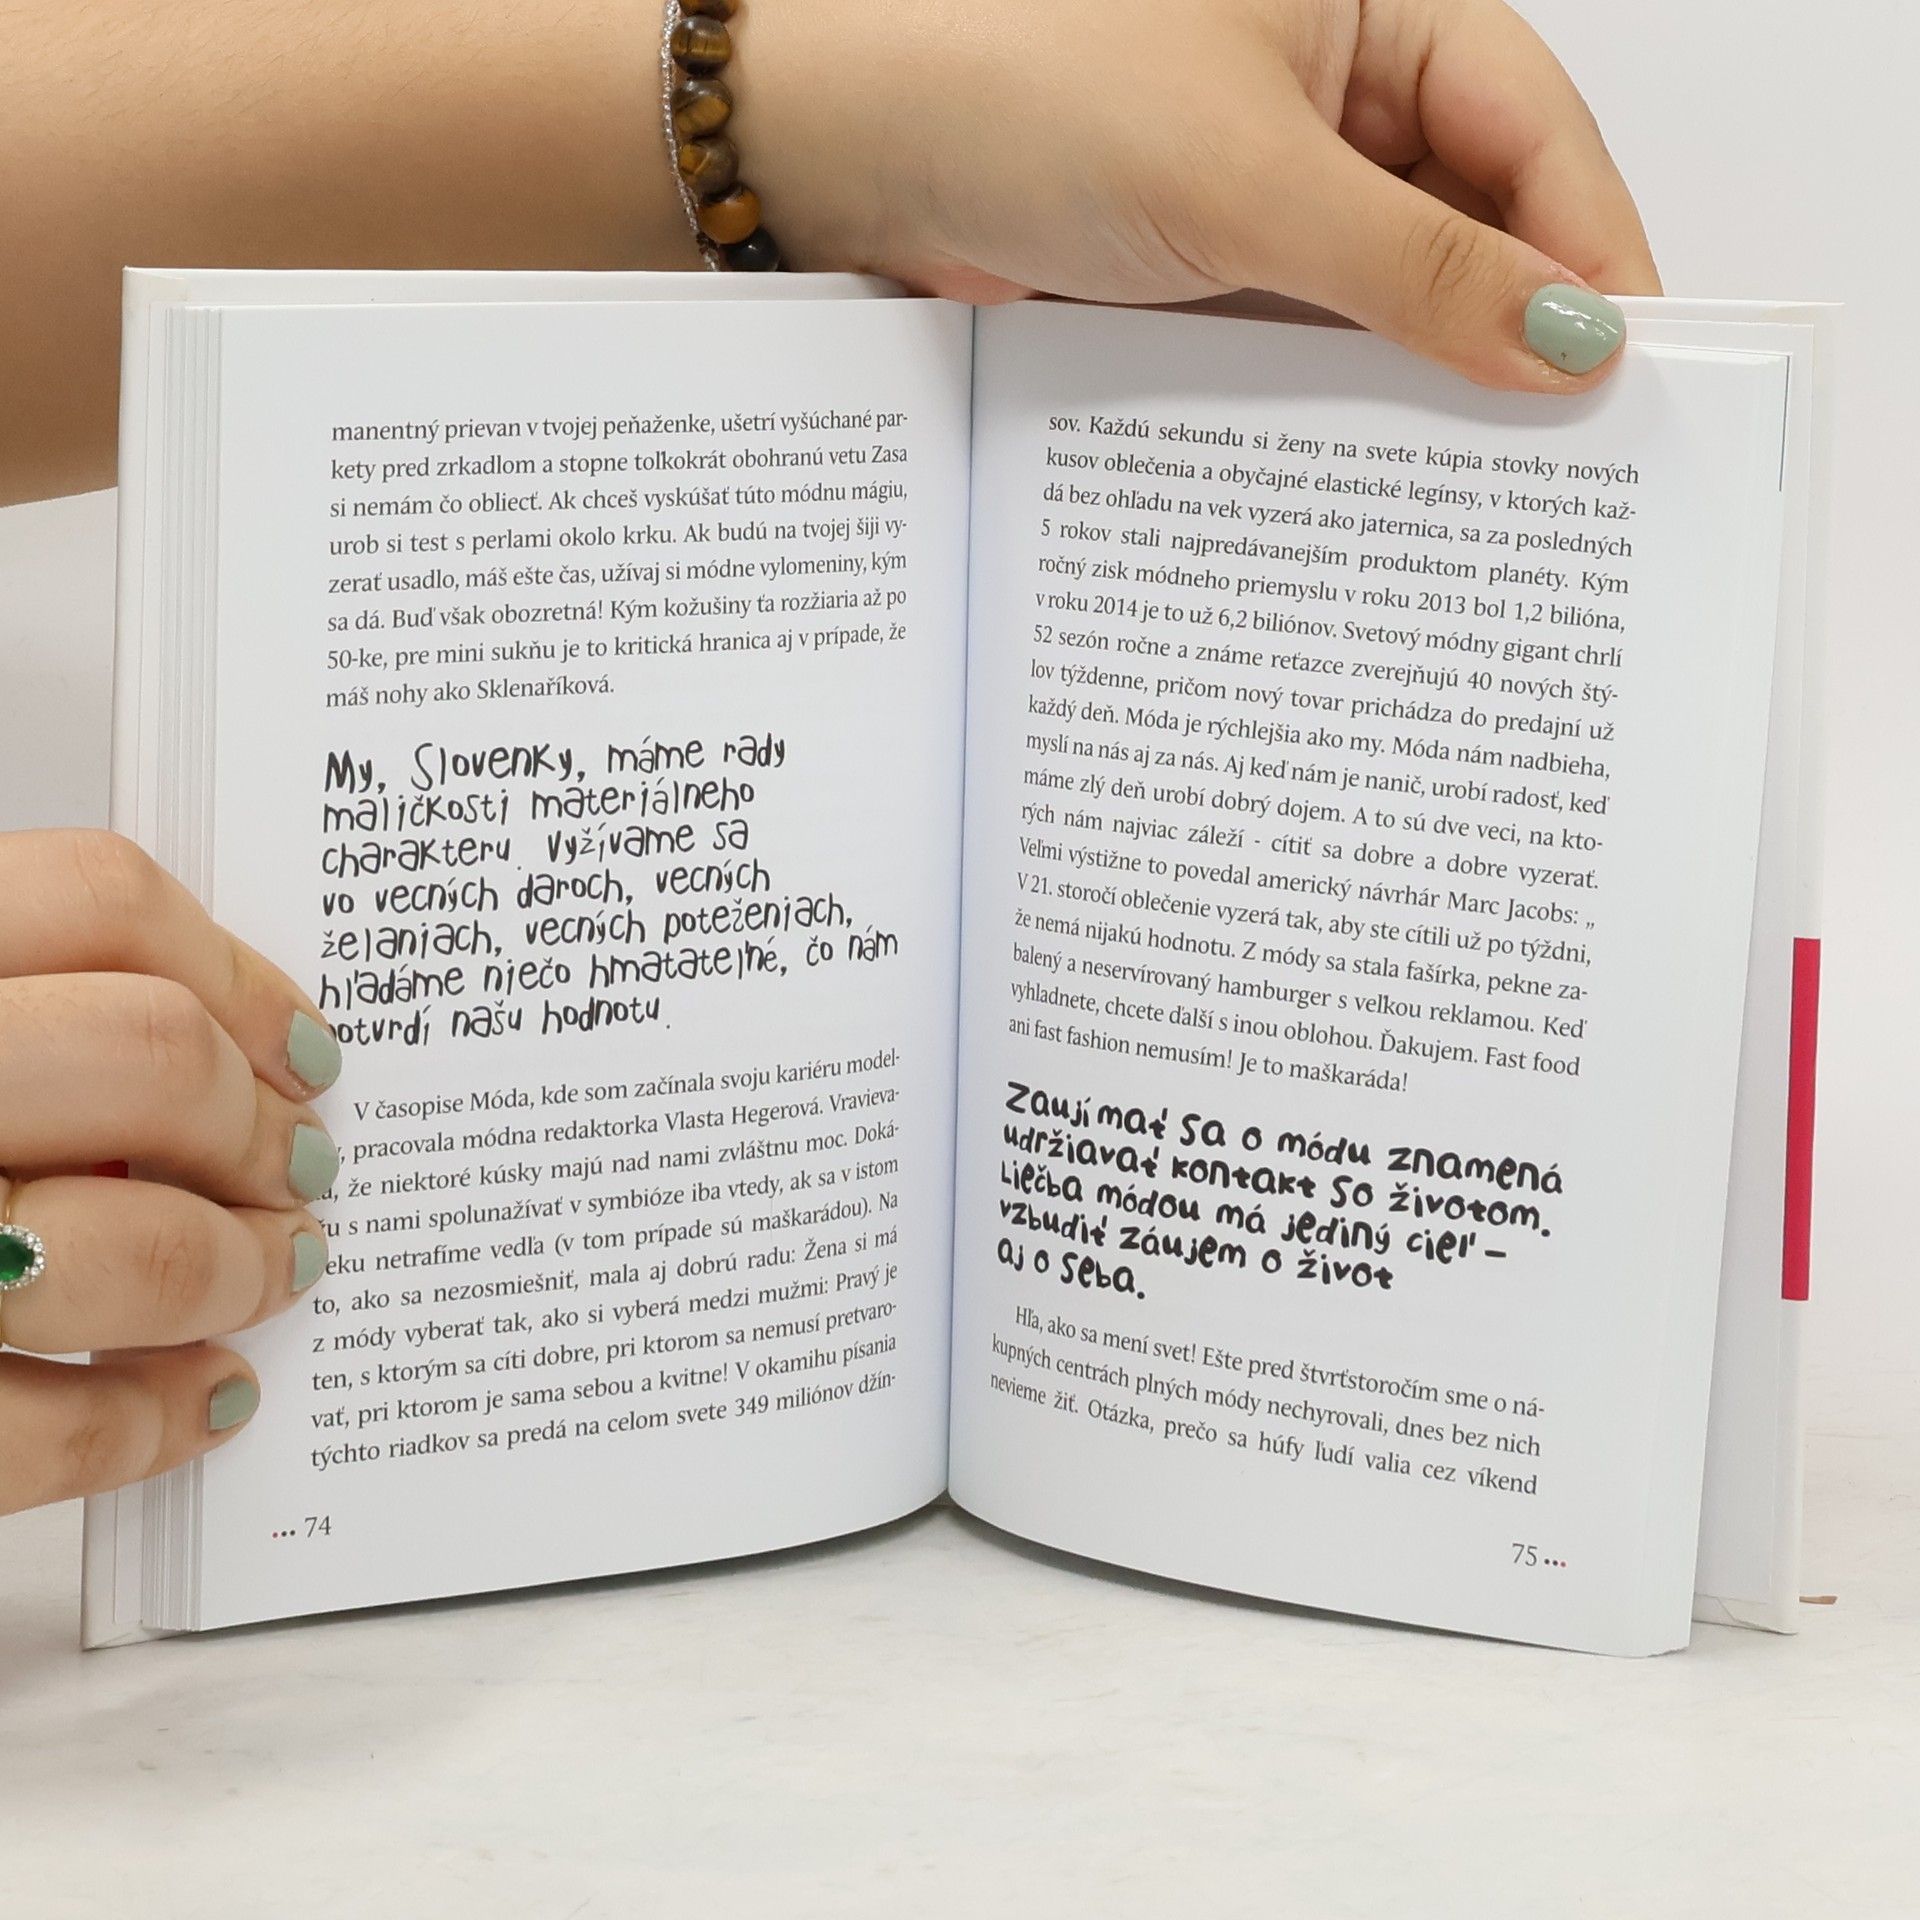 manentný prievan v tvojej peňaženke, ušetrí vyšúchané par-
kety pred zrkadlom a stopne toľkokrát obohranú vetu Zasa
si nemám čo obliecť. Ak chceš vyskúšať túto módnu mágiu,
urob si test s perlami okolo krku. Ak budú na tvojej šiji vy-
zerať usadlo, máš ešte čas, užívaj si módne vylomeniny, kým
sa dá. Buď však obozretná! Kým kožušiny ťa rozžiaria až po
50-ke, pre mini sukňu je to kritická hranica aj v prípade, že
máš nohy ako Sklenaříková.
My, Slovenky, máme rady
maličkosti materiálneho
charakteru. Vyžívame sa
vo vecných daroch, vecných
želaniach, vecných poteženiach,
hľadáme niečo hmatateľné, čo nám
potvrdí našu hodnotu.
V časopise Móda, kde som začínala svoju kariéru model-
pracovala módna redaktorka Vlasta Hegerová. Vravieva-
že niektoré kúsky majú nad nami zvláštnu moc. Doká-
s nami spolunažívať v symbióze iba vtedy, ak sa v istom
veku netrafíme vedľa (v tom prípade sú maškarádou). Na
to, ako sa nezosmiešniť, mala aj dobrú radu: Žena si má
z módy vyberať tak, ako si vyberá medzi mužmi: Pravý je
ten, s ktorým sa cíti dobre, pri ktorom sa nemusí pretvaro-
vať, pri ktorom je sama sebou a kvitne! V okamihu písania
týchto riadkov sa predá na celom svete 349 miliónov džín-
... 74
sov. Každú sekundu si ženy na svete kúpia stovky nových
kusov oblečenia a obyčajné elastické legínsy, v ktorých kaž-
dá bez ohľadu na vek vyzerá ako jaternica, sa za posledných
5 rokov stali najpredávanejším produktom planéty. Kým
ročný zisk módneho priemyslu v roku 2013 bol 1,2 bilióna,
v roku 2014 je to už 6,2 biliónov. Svetový módny gigant chrlí
52 sezón ročne a známe reťazce zverejňujú 40 nových štý-
lov týždenne, pričom nový tovar prichádza do predajní už
každý deň. Móda je rýchlejšia ako my. Móda nám nadbieha,
myslí na nás aj za nás. Aj keď nám je nanič, urobí radosť, keď
máme zlý deň urobí dobrý dojem. A to sú dve veci, na kto-
rých nám najviac záleží - cítiť sa dobre a dobre vyzerať.
Veľmi výstižne to povedal americký návrhár Marc Jacobs: „
V 21. storočí oblečenie vyzerá tak, aby ste cítili už po týždni,
že nemá nijakú hodnotu. Z módy sa stala fašírka, pekne za-
balený a neservírovaný hamburger s veľkou reklamou. Keď
vyhladnete, chcete ďalší s inou oblohou. Ďakujem. Fast food
ani fast fashion nemusím! Je to maškaráda!
Zaujímať sa o módu znamená
udržiavať kontakt so životom.
Liečba módou má jediný cieľ –
vzbudiť záujem o život
aj o seba.
Hľa, ako sa mení svet! Ešte pred štvrťstoročím sme o ná-
kupných centrách plných módy nechyrovali, dnes bez nich
nevieme žiť. Otázka, prečo sa húfy ľudí valia cez víkend
75 ...